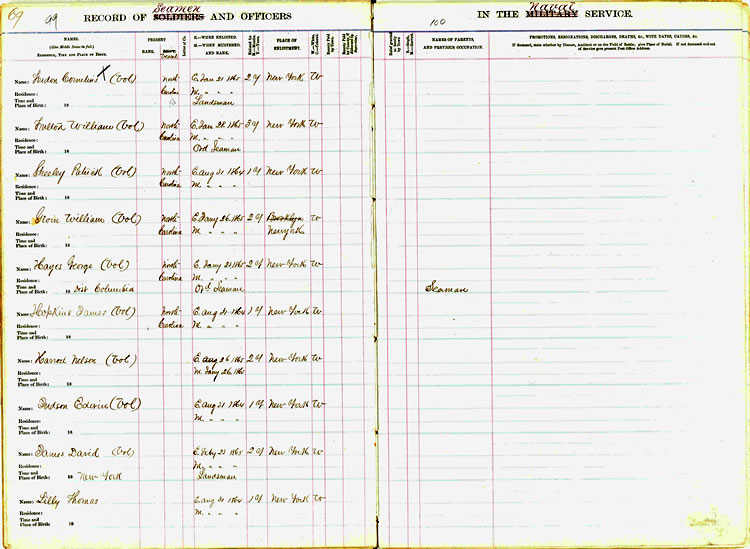 69
99
Seamen
RECORD OF SOLDIERS AND OFFICERS
NAMES.
(Give Middle Name in full.)
RESIDENCE, TIME AND PLACE OF BIRTH.
PRESENT
RANK.
Vessel
E.—WHEN ENLISTED.
M.—WHEN MUSTERED, AND RANK.
PLACE OF ENLISTMENT.
100
Naval
IN THE MILITARY SERVICE.
NAMES OF PARENTS,
AND PREVIOUS OCCUPATION.
PROMOTIONS, RESIGNATIONS, DISCHARGES, DEATHS, &c., WITH DATES, CAUSES, &c.
If deceased, state whether by Disease, Accident or on the Field of Battle; give Place of Burial. If not deceased and out of Service give present Post Office Address.
Name: Cornelius X (Vol) North E. Jan 21 1865 2 y New York W
Residence: Carolina M. " " "
Time and Landsman
Place of Birth: 18
Name: William (Vol) North E. Jan 28 1865 3 y New York W
Residence: Carolina M. " " "
Time and Ord Seaman
Place of Birth: 18
Name: Gheeley Patrick (Vol) North E. aug 31 1864 1 y New York W
Residence: Carolina M. " " "
Time and
Place of Birth: 18
Name: William (Vol) North E. Jany 26. 1865 2 y Brooklyn W
Residence: Carolina M. " " " New York
Time and
Place of Birth: 18
Name: Hayes George (Vol) North E. Jany 1865 2 y New York W
Residence: Carolina M. " " "
Time and Ord Seaman Seaman
Place of Birth: 18 Dist Columbia
Name: Hopkins James (Vol) North E. aug 31 1864 1 y New York W
Residence: Carolina M. " " "
Time and
Place of Birth: 18
Name: Harrod Nelson (Vol) E. aug 26 1865 2 y New York W
Residence: M. Jany 26. 1865
Time and
Place of Birth: 18
Name: Judson Edwin (Vol) E. aug 31 1864 1 y New York W
Residence: M. " " "
Time and
Place of Birth: 18
Name: James David (Vol) E. Feby 23 1865 2 y New York W
Residence: M. " " "
Time and Landsman
Place of Birth: 18 New York
Name: Lilly Thomas E. aug 31 1864 1 y New York W
Residence: M. " " "
Time and
Place of Birth: 18